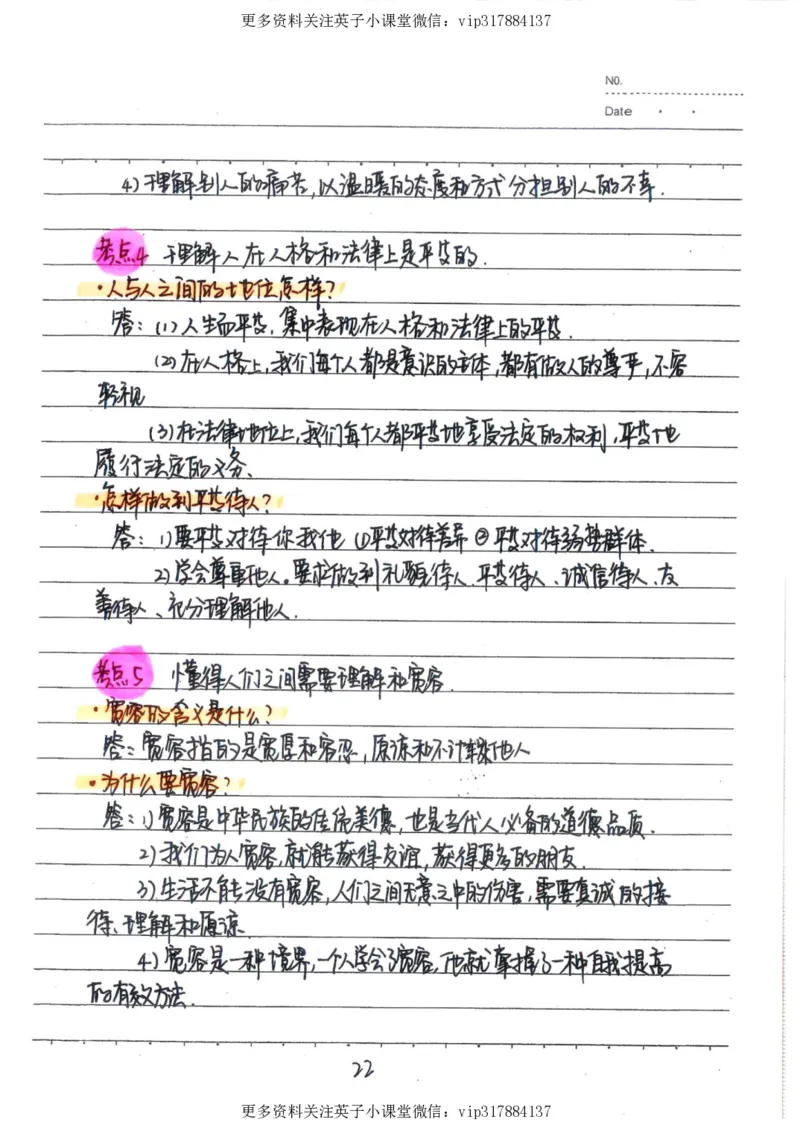 更多资料关注英子小课堂微信：vip317884137
No.
Date
4)理解别人的痛苦,以温暖的态度和方式分担别人的不幸.
考点4 理解人在人格和法律上是平等的.
·人与人之间的地位怎样?
答：(1)人生而平等,集中表现在人格和法律上的平等.
(2)在人格上,我们每个人都是意识的主体,都有做人的尊严,不容
轻视
(3)在法律地位上,我们每个人都平等地享受法定的权利,平等地
履行法定的义务、
·怎样做到平等待人?
答：1)要平等对待你我他 ①平等对待差异 ②平等对待弱势群体.
2)学会尊重他人。要求做到礼貌待人、平等待人、诚信待人、友
善待人、充分理解他人.
考点5 懂得人们之间需要理解和宽容.
·宽容的含义是什么?
答：宽容指的是宽厚和容忍,原谅和不计较他人
·为什么要宽容?
答：1)宽容是中华民族的传统美德,也是当代人必备的道德品质.
2)我们为人宽容,就能获得友谊,获得更多的朋友.
3)生活不能没有宽容,人们之间无意之中的伤害,需要真诚的接
待、理解和原谅.
4)宽容是一种境界,一个人学会了宽容,他就掌握了一种自我提高
的有效方法.
22
更多资料关注英子小课堂微信：vip317884137